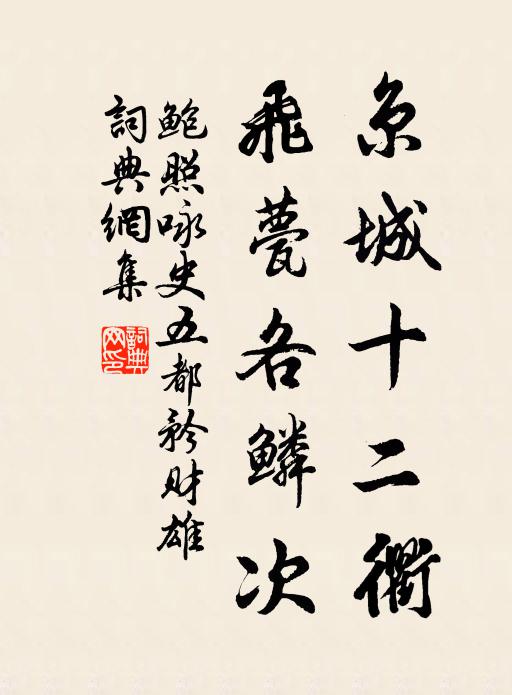 京城十二衢
飛甍各鱗次
鮑照咏史五都矜財雄
詞典網集
詞典
网印